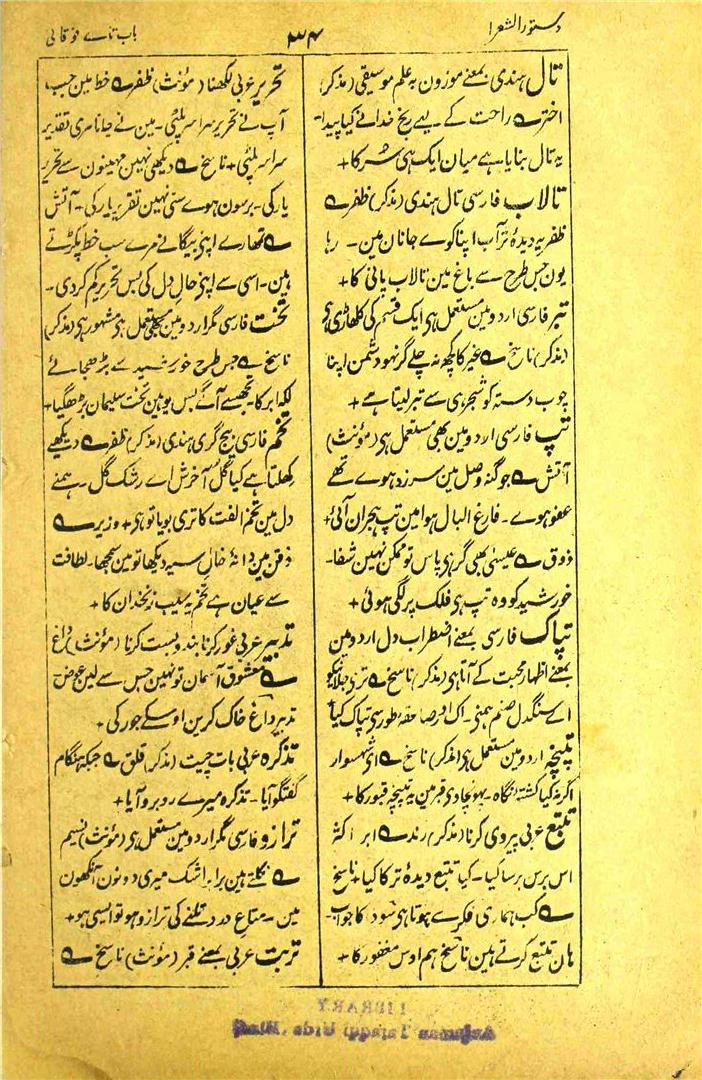 دستور الشعرا
۳۴
باب تاے فوقانی
تال ہندی بمعنے موزون بہ علم موسیقی (مذکر)
اختر ؎ راحت کے لیے رنج خدا نے کیا پیدا۔
یہ تال بنایا ہے میان ایک ہی سُر کا +
تالاب فارسی تال ہندی (مذکر) ظفر ؎
ظفر یہ دیدۂ تر آب اپنا کوے جانان مین۔ رہا
یون جس طرح سے باغ مین تالاب پانی کا +
تبر فارسی اردو مین مستعمل ہی ایک قسم کی کلھاڑی ہی
(مذکر) ناسخ ؎ غیر کا کچھ نہ چلے گر نہو دشمن اپنا
چوب دستہ کو شجر ہی سے تبر لیتا ہے +
تپ فارسی اردو مین بھی مستعمل ہی (مؤنث)
آتش ؎ جو گنہ وصل مین سرزد ہوے تھے
عفو ہوے۔ فارغ البال ہوا مین تپ ہجران آئی +
ذوق ؎ عیسیٰ بھی گر ہی پاس تو ممکن نہین شفا۔
خورشید کو وہ تپ ہی فلک پر لگی ہوئی +
تپاک فارسی بمعنے اضطراب دل اردو مین
بمعنے اظہار محبت کے آتا ہی (مذکر) ناسخ ؎ ترے جلانیکو
اے سنگدل صنم ہمنے۔ اک اور صاعقۂ طور سے تپاک کیا +
تپنچہ اردو مین مستعمل ہی (مذکر) ناسخ ؎ ای شہسوار
اگر نہ کیا کشتۂ نگاہ۔ پہونچا دی قبر مین یہ تپنچہ قبور کا +
تتبع عربی پیروی کرنا (مذکر) رند ؎ ابر اکثر
اس برس برسا کیا۔ کیا تتبع دیدۂ تر کا کیا + ناسخ
؎ کب ہماری فکر سے ہوتا ہی سودا کا جواب۔
ہان تتبع کرتے ہین ناسخ ہم اوس مغفور کا +
تحریر عربی لکھنا (مؤنث) ظفر ؎ خط مین جب،
آپ نے تحریر سراسر پلٹی۔ مین نے جانا مری تقدیر
سراسر پلٹی + ناسخ ؎ دیکھی نہین مہینون سے تحریر
یار کی۔ برسون ہوے سنی نہین تقریر یار کی۔ آتش
؎ تمھارے اپنی بیگانے مرے سب خط پکڑتے
ہین۔ اسی سے اپنی حال دل کی بس تحریر کم کردی۔
تخت فارسی مگر اردو مین بھی مستعمل ہی مشہور ہی (مذکر)
ناسخ ؎ جس طرح خورشید سے بڑھ جائے
لکہ ابر کا۔ تجھسے آگے بس یوہین تخت سلیمان بڑھ گیا +
تخم فارسی بیج گری ہندی (مذکر) ظفر ؎ دیکھیے
کھلتا ہے کیا گل آخرش اے رشک گل۔ ہمنے
دل مین تخم الفت کا تری بویا تو ہی + وزیر ؎
ذقن مین دانۂ خال سیہ دیکھا تو مین سمجھا۔ لطافت
سے عیان ہے تخم یہ سیب زنخدان کا +
تدبیر عربی غور کرنا بندوبست کرنا (مؤنث) داغ
؎ معشوق آسمان تو نہین جس سے لین عوض
تدبیر داغ خاک کرین اوسکے جور کی +
تذکرہ عربی بات چیت (مذکر) قلق ؎ جبکہ ہنگام
گفتگو آیا۔ تذکرہ میرے روبرو آیا +
ترازو فارسی مگر اردو مین مستعمل ہی (مؤنث) نسیم
؎ نکلتے ہین برابر اشک میری دونون آنکھون
مین۔ متاع درد تلنے کی ترازو ہو تو ایسی ہو +
تربت عربی بمعنے قبر (مؤنث) ناسخ ؎
LIBRARY
Anjuman Taraqqi Urdu (Hind)